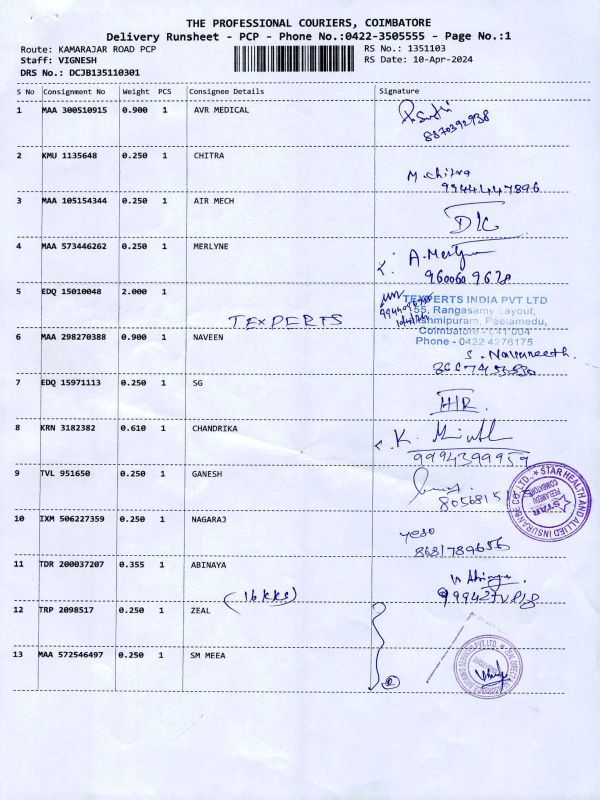 THE PROFESSIONAL COURIERS, COIMBATORE
Delivery Runsheet - PCP - Phone No.:0422-3505555 - Page No.:1
Route: KAMARAJAR ROAD PCP
RS No.: 1351103
Staff: VIGNESH
RS Date: 10-Apr-2024
DRS No.: DCJB135110301
S No Consignment No Weight PCS Consignee Details Signature
1 MAA 300510915 0.900 1 AVR MEDICAL
8870392938
2 KMU 1135648 0.250 1 CHITRA
M. Chitra
9944447896
3 MAA 105154344 0.250 1 AIR MECH
D/C
4 MAA 573446262 0.250 1 MERLYNE
A. Merlyn
960060 9628
5 EDQ 15010048 2.000 1
TEXPERTS
TEXPERTS INDIA PVT LTD
55, Rangasamy Layout,
Lakshmipuram, Peelamedu,
Coimbatore - 641 004
Phone - 0422 4276175
6 MAA 298270388 0.900 1 NAVEEN
S. Navaneeth.
7 EDQ 15971113 0.250 1 SG
H/R.
8 KRN 3182382 0.610 1 CHANDRIKA
K.
9994399959
9 TVL 951650 0.250 1 GANESH
STAR HEALTH AND ALLIED INSURANSE CO. LTD.
STAR
PEELAMEDU
COIMBATORE
10 IXM 506227359 0.250 1 NAGARAJ
yeso
8681789656
11 TDR 200037207 0.355 1 ABINAYA
(16 KKS)
12 TRP 2098517 0.250 1 ZEAL
13 MAA 572546497 0.250 1 SM MEEA